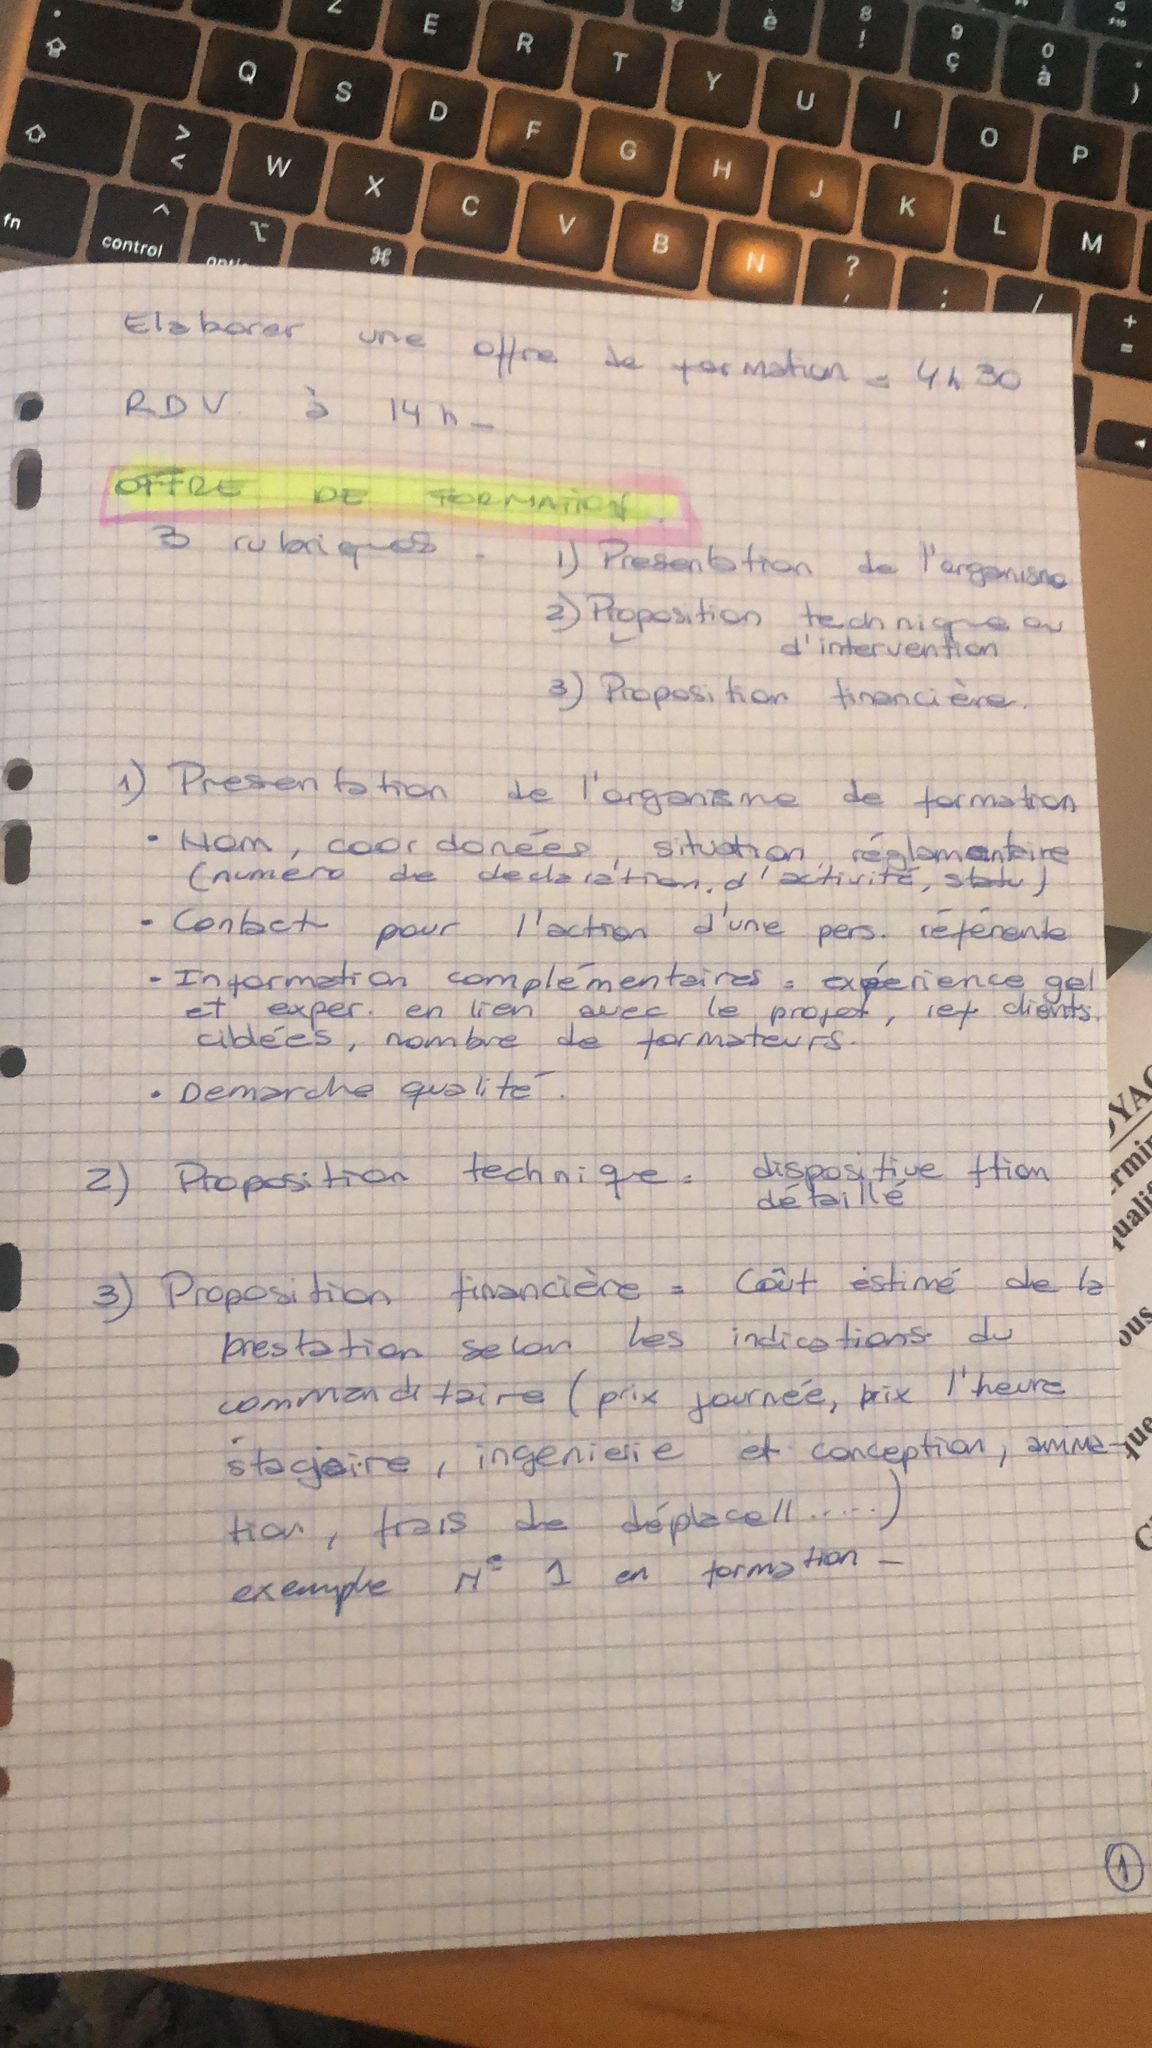 Z E R T Y U I O P
Q S D F G H J K L M
> < W X C V B N ? , . ; : / + =
fn control option ⌘
è 8 ! 9 ç 0 à )
Elaborer une offre de formation = 4h30
RDV à 14h –
OFFRE DE FORMATION.
3 rubriques. 1) Presentation de l'organisme
2) Proposition technique ou
d'intervention
3) Proposition financière.
1) Presentation de l'organisme de formation
• Nom, coordonées, situation, réglementaire
(numero de declaration, d'activité, statu)
• Contact pour l'action d'une pers. référente
• Information complémentaires = expérience gel
et exper. en lien avec le projet, ref clients.
ciblées, nombre de formateurs.
• Demarche qualité.
2) Proposition technique = dispositive ftion
détaillé
3) Proposition financière = Coût estimé de la
prestation selon les indications du
commanditaire (prix journée, prix l'heure
stagiaire, ingenierie et conception, anima-
tion, frais de déplacell.....)
exemple N° 1 en formation –
1